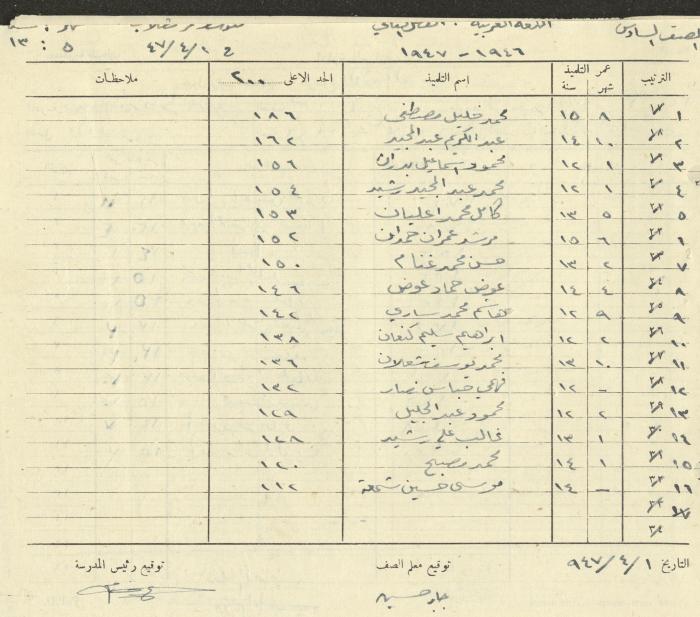 الصف السادس اللغة العربية . الفصل الثاني
١٩٤٦ - ١٩٤٧ ٤٧/٤/١ ٥ : ١٣
الترتيب عمر التلميذ شهر سنة اسم التلميذ الحد الاعلى ٢٠٠ ملاحظات
١ ٨ ١٥ محمد خليل مصطفى ١٨٦
٢ ١٠ ١٤ عبد الكريم عبد المجيد ١٦٢
٣ ١ ١٢ محمود اسماعيل بدران ١٥٦
٤ ١ ١٢ محمد عبد المجيد رشيد ١٥٤
٥ ٥ ١٣ كامل محمد اعليان ١٥٣
٦ ٦ ١٥ مرشد عمران حمدان ١٥٢
٧ ٢ ١٣ حسن محمد غنام ١٥٠
٨ ٤ ١٤ عوض حماد عوض ١٤٦
٩ ٩ ١٢ هاشم محمد ساري ١٤٢
١٠ ٢ ١٢ ابراهيم سليم كنعان ١٣٨
١١ ١٠ ١٣ محمد يوسف شعلان ١٣٦
١٢ - ١٢ فهمي عباس نصار ١٣٢
١٣ ٢ ١٢ محمود عبد الجليل ١٢٩
١٤ ١ ١٣ غالب علي رشيد ١٢٨
١٥ ١ ١٤ محمد مصبح ١٢٠
١٦ - ١٤ موسى حسين شحة ١١٢
١٧
التاريخ ٩٤٧/٤/١ توقيع معلم الصف توقيع رئيس المدرسة
جابر حسين